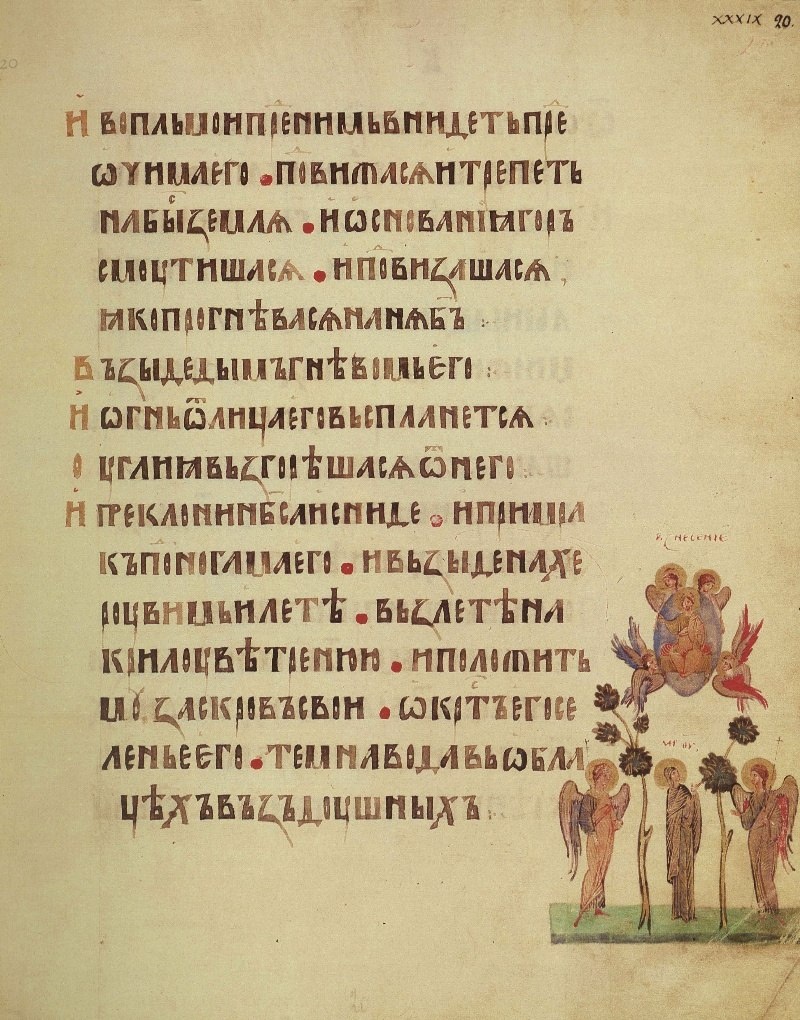 XXXIX 20.
И вопльмоипрѣнимьвнидетьпре
ѡушимаего • подвижасѧитрепеть
набыⷭ҇земля • иѡснованиꙗгоръ
смоутишасѧ • иподвизашасѧ
ꙗкопрогнѣвасѧнанѧб҃ъ
Възыдедымъгнѣвомьего
Иогньѿлицаеговъспланетсѧ
Оуглиꙗвъзгорѣшасѧѿнего
Ипреклонинб҃саисниде • ипримра
къподногамаего • ивъзыденахе
роувимъилетѣ • възлетѣна
крилоувѣтренюю • иположить
моу҇заскровъсвои • ѡкрⷭ҇тъегосе
леньеего • темнаводавъѡбла
цѣхъвъздоушныхъ